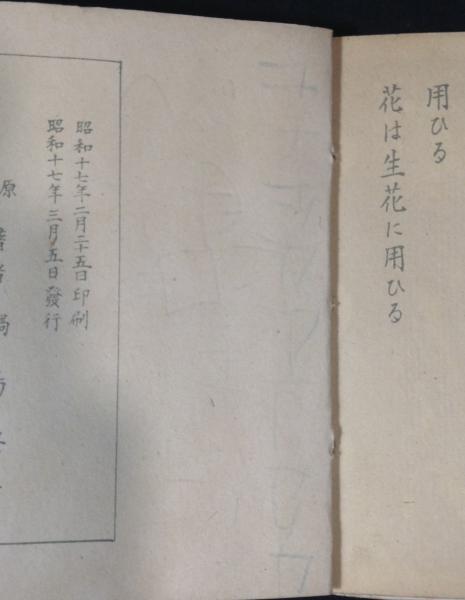 用ひる
花は生花に用ひる
昭和十七年二月二十五日印刷
昭和十七年三月五日發行
原著者